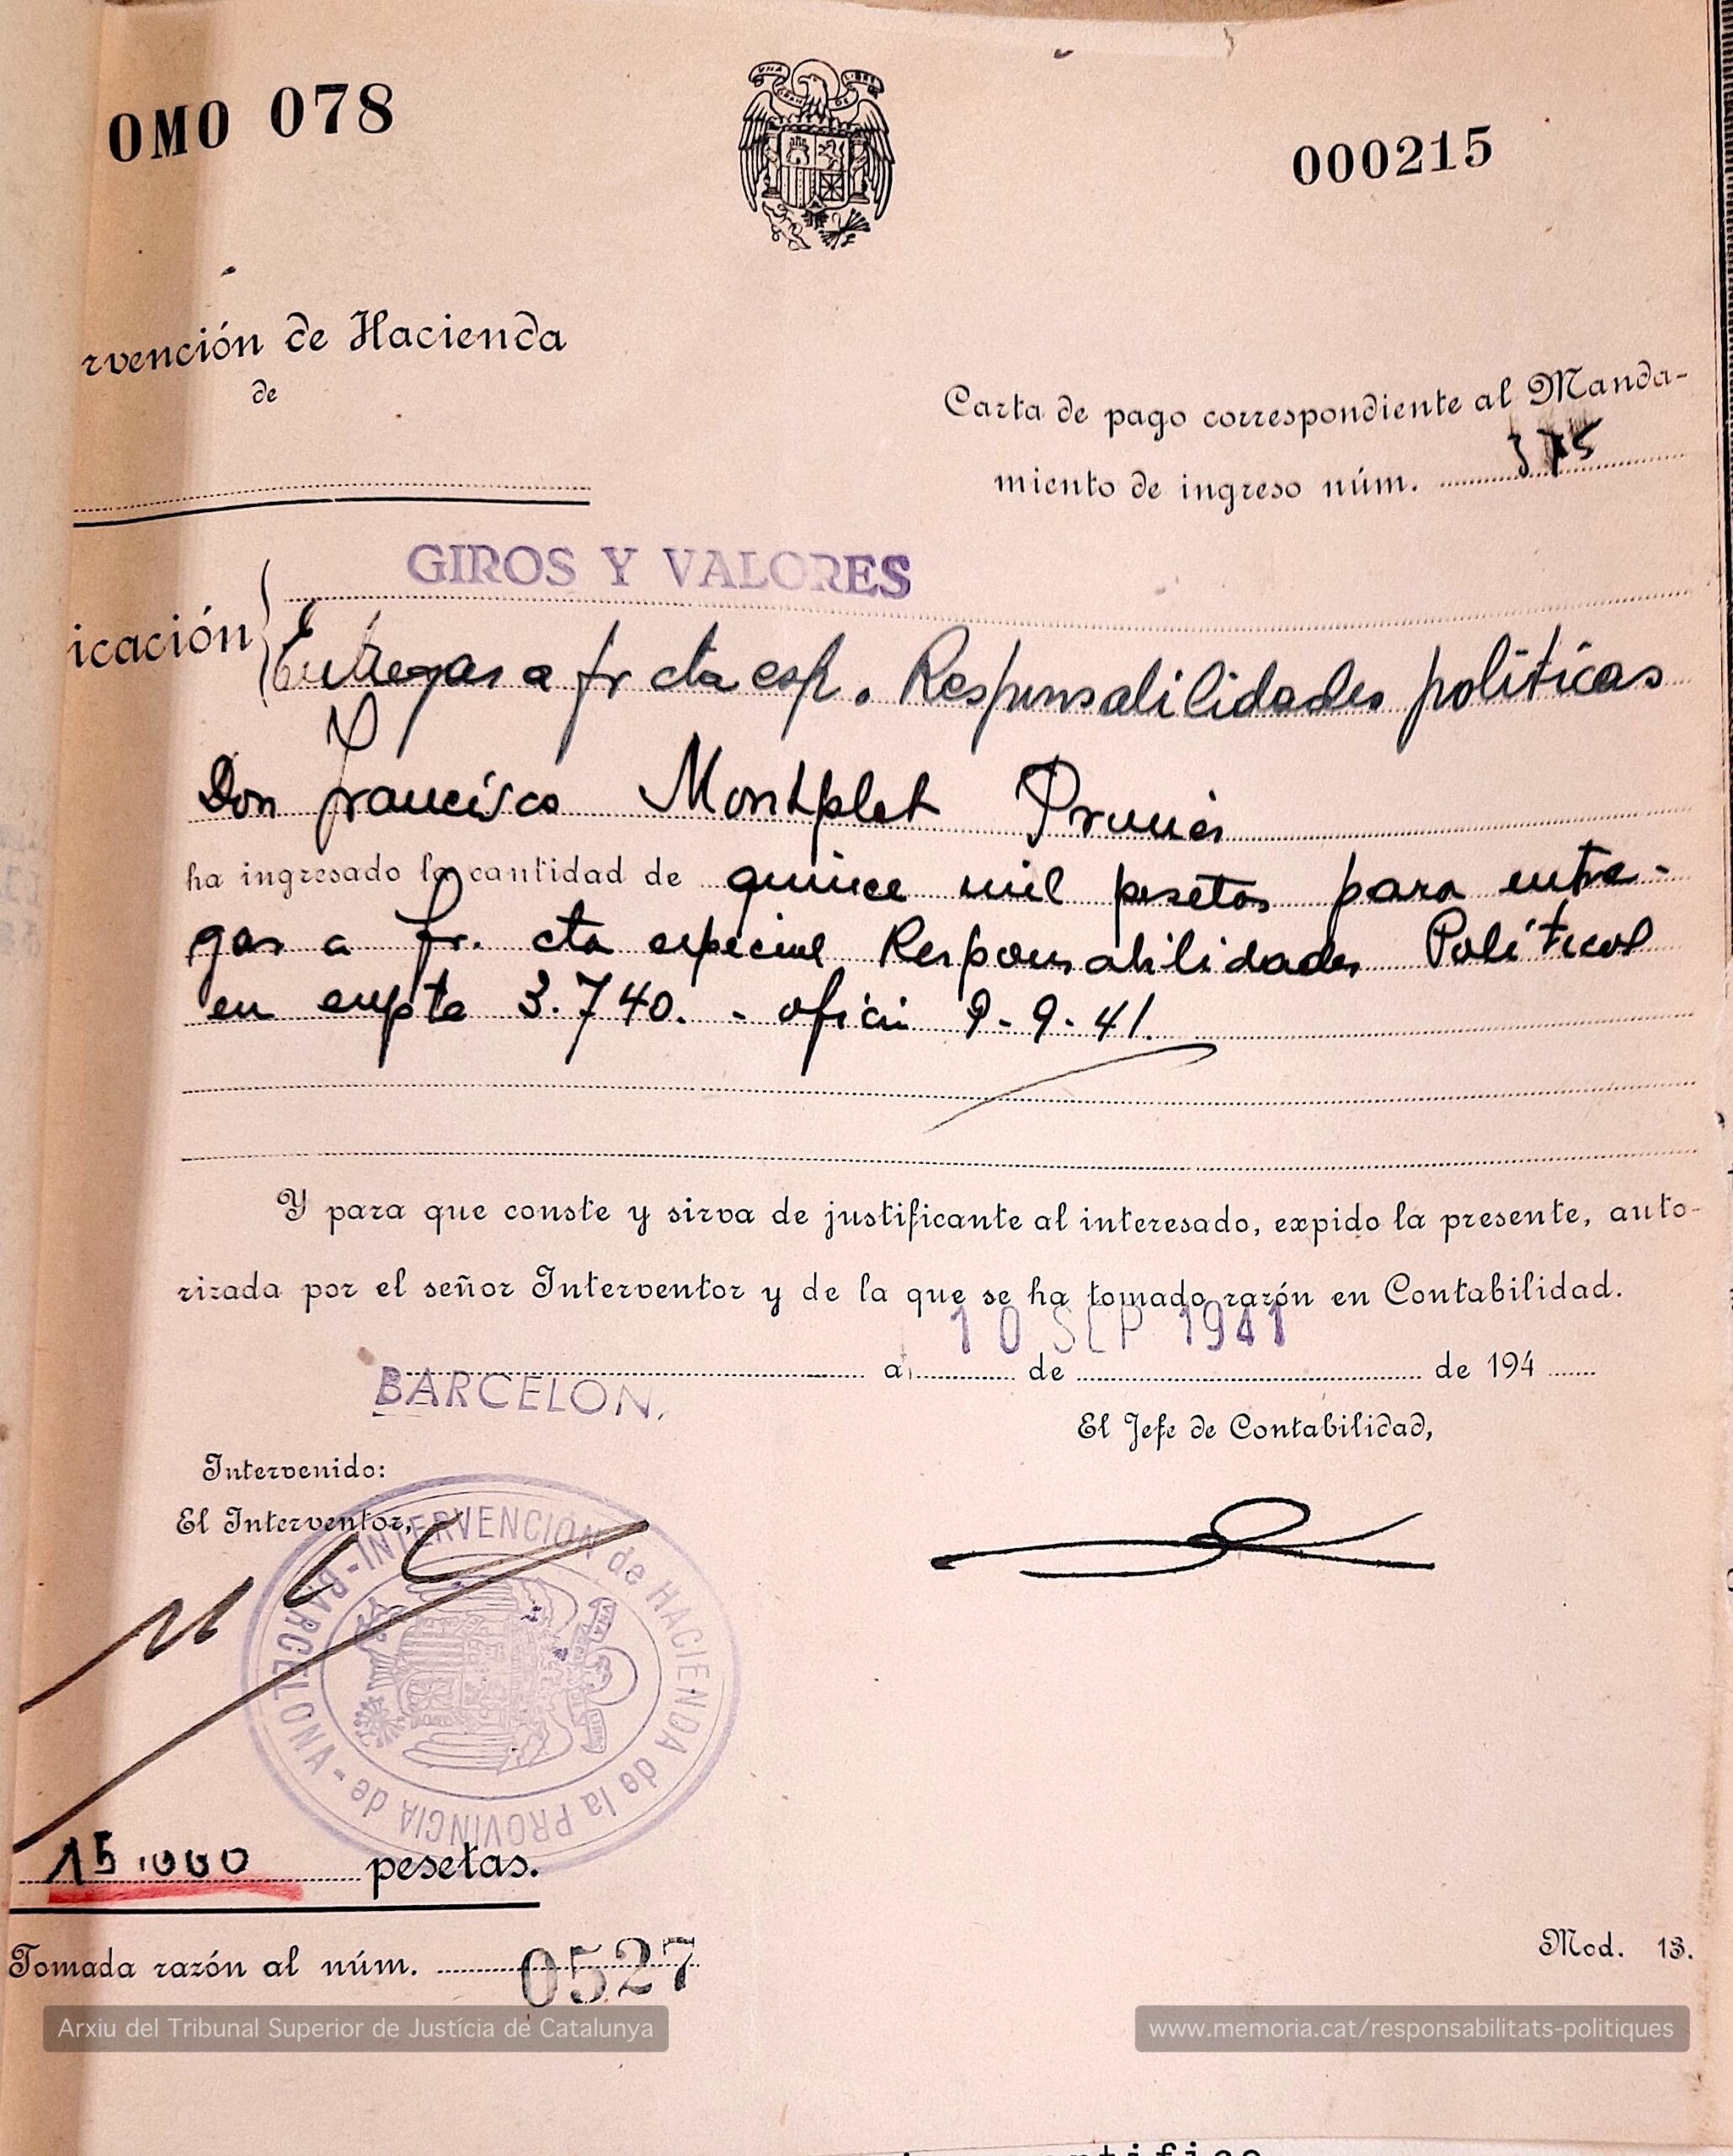 OMO 078
000215
rvención de Hacienda
de
Carta de pago correspondiente al Manda-
miento de ingreso núm. 375
GIROS Y VALORES
icación
Entregas a fr cta esp. Responsabilidades políticas
Don Francisco Montplet Prunés
ha ingresado la cantidad de quince mil pesetas para entre-
gas a fr. cta especial Responsabilidades Políticas
en expte 3.740. - oficio 9-9-41.
Y para que conste y sirva de justificante al interesado, expido la presente, auto-
rizada por el señor Interventor y de la que se ha tomado razón en Contabilidad.
10 SEP 1941
a de de 194
BARCELON
El Jefe de Contabilidad,
Intervenido:
El Interventor,
INTERVENCIÓN de HACIENDA de la PROVINCIA de - BARCELONA -
15.000 pesetas.
Tomada razón al núm. 0527
Mod. 13.
Arxiu del Tribunal Superior de Justícia de Catalunya
www.memoria.cat/responsabilitats-politiques